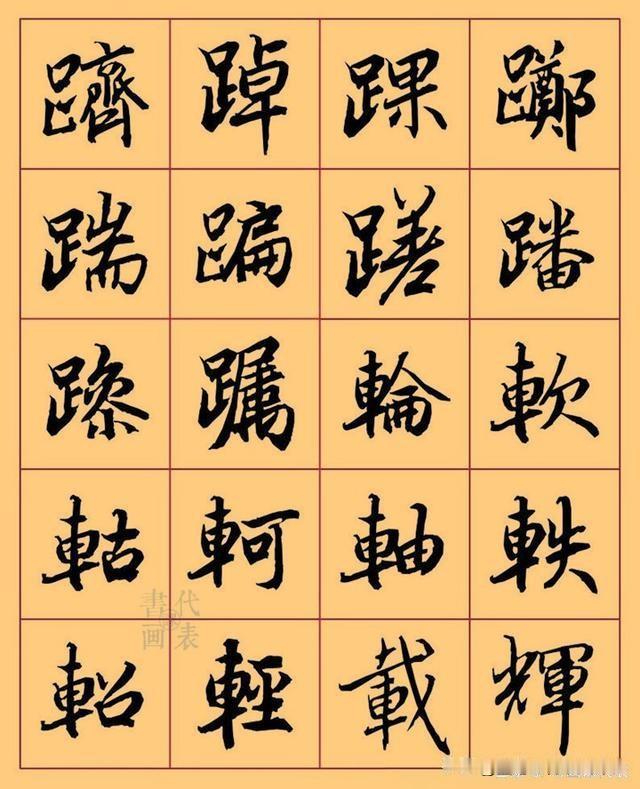 躋 踔 踝 躑
踹 蹁 蹉 蹯
躒 躅 輪 軟
軲 軻 軸 軼
軺 輕 載 輝
書画
代表